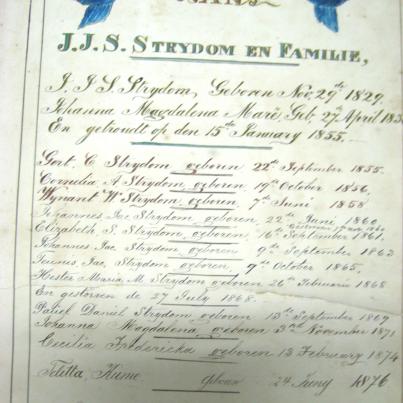 AAN
J.J.S. STRYDOM EN FAMILIE,
J. J S Strydom, Geboren Nov, 29ste 1829.
Johanna Magdalena Maré, Geb, 27ste April
En getroudt op den 15de January 1855.
Gert. C Strydom geboren 22ste September 1855.
Cornelia A Strydom, geboren 19de October 1856,
Wynant W Strydom, geboren 7de Junie 1858
Johannes Jac Strydom, geboren 22ste Junie 1860
Elizabeth S. Strydom, geboren 16de September 1861.
Johannes Jac, Strydom, geboren 9de September 1863
Teunis, Jac, Strydom, geboren 7de October 1865,
Hester Maria M. Strydom geboren 26ste Februarie 1868
En gestorven de 27 July 1868.
Daniel Strydom, geboren 13de September 1869
Johanna Magdalena, geboren 3de November 1871
Cecilia Fredericka geboren 13 February 1874
24 Juny 1876